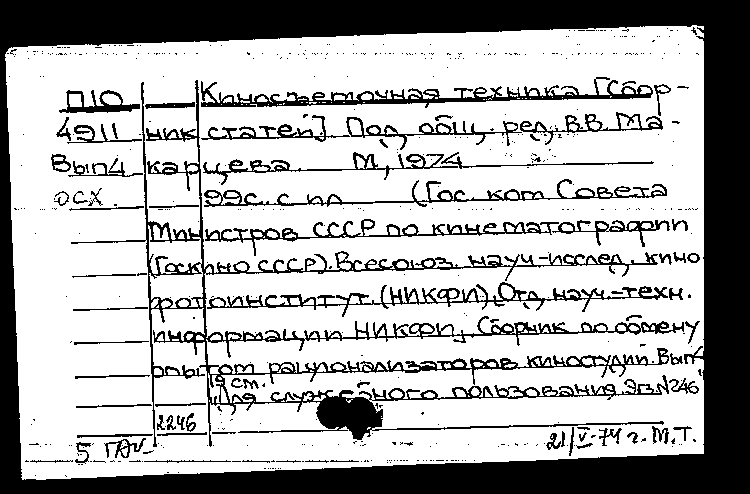 П10 Киносъемочная техника [Сбор-
4911 ник статей] Под общ. ред. В.В. Ма-
Вып4 карцева. М, 1974
ОСХ. 99с. с ил (Гос. ком Совета
Министров СССР по кинематографии
(Госкино СССР). Всесоюз. науч-исслед. кино
фотоинститут. (НИКФИ). Отд науч.-техн.
информации НИКФИ, Сборник по обмену
опытом рационализаторов киностудий. Вып4
19 ст.
"Для служебного пользования. Экз.N246"
2246
5 21/V-74 г. М.Т.